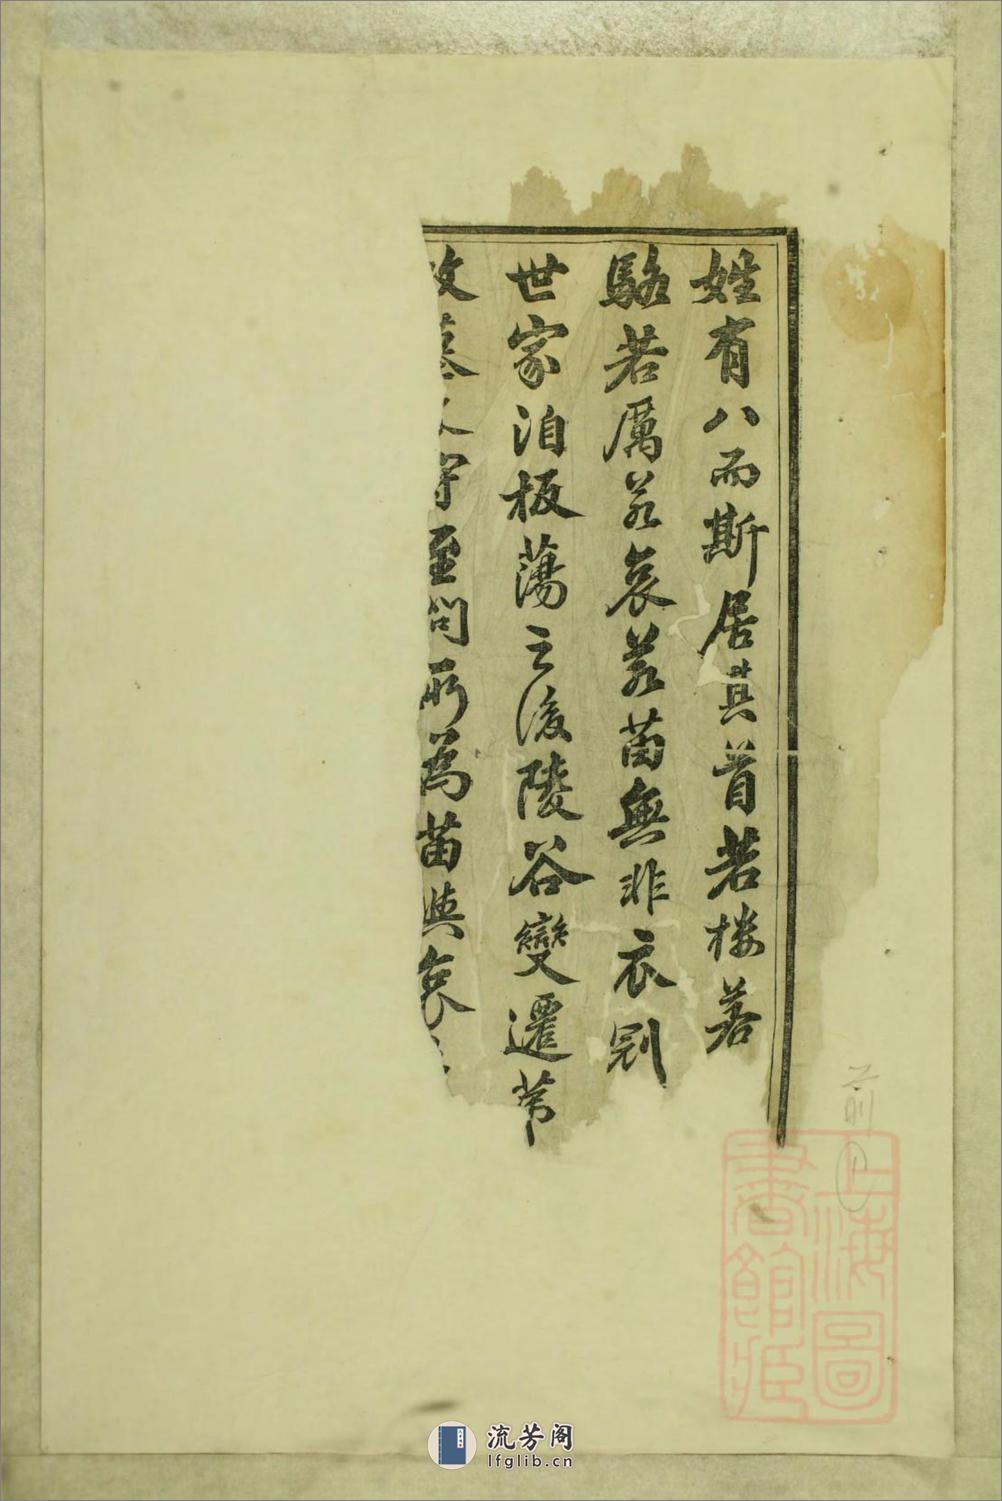 姓有八而斯居其首若樓若
駱若厲若袁若茵無非衣冠
世家洎板蕩之後陵谷變遷第
故墓人守至問所為茵與袁
前
1
上海圖
書館藏
流芳阁
lfglib.cn